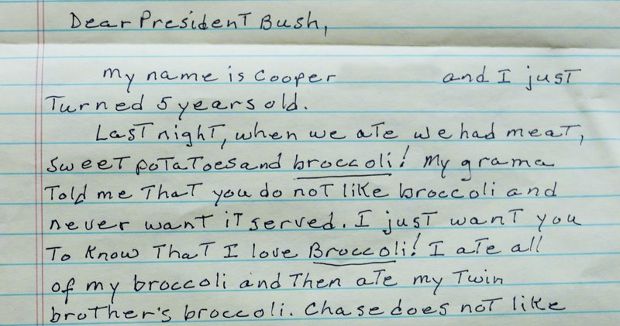 Dear President Bush,
my name is Cooper and I just
Turned 5 years old.
Last night, when we ate we had meat,
sweet potatoes and broccoli! my grama
Told me That you do not like broccoli and
never want it served. I just want you
To know That I love Broccoli! I ate all
of my broccoli and Then ate my Twin
brother's broccoli. Chase does not like